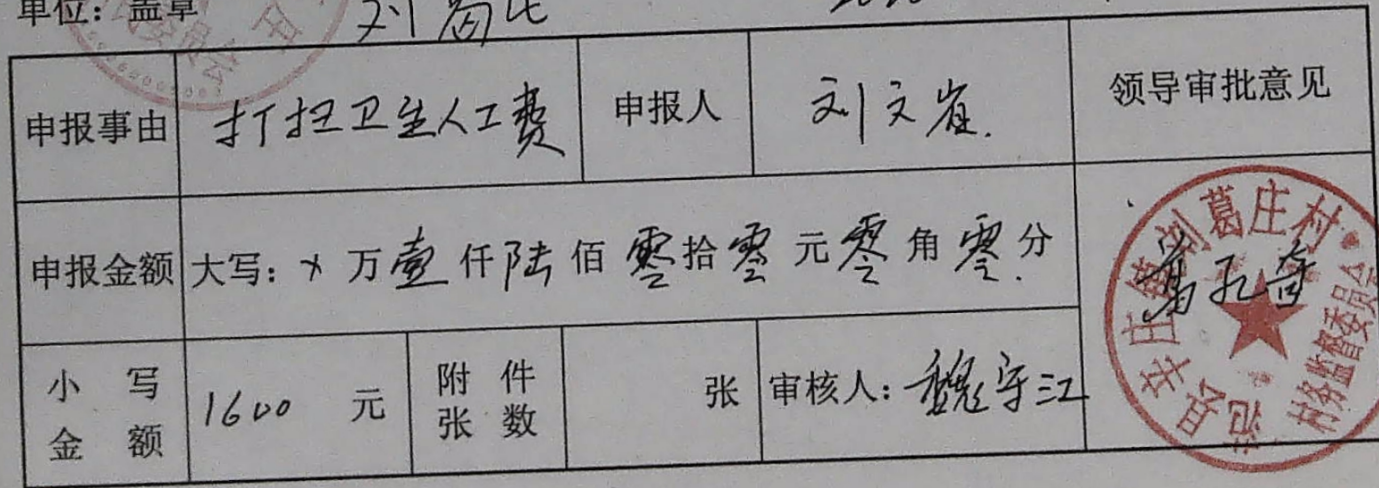 单位：盖章
申报事由 打扫卫生人工费 申报人 刘文崔 领导审批意见
申报金额 大写：× 万 壹 仟 陆 佰 零 拾 零 元 零 角 零 分
小写金额 1600 元 附件张数 张 审核人：魏守江
葛孔奇
辛庄镇刘葛庄村
村务监督委员会